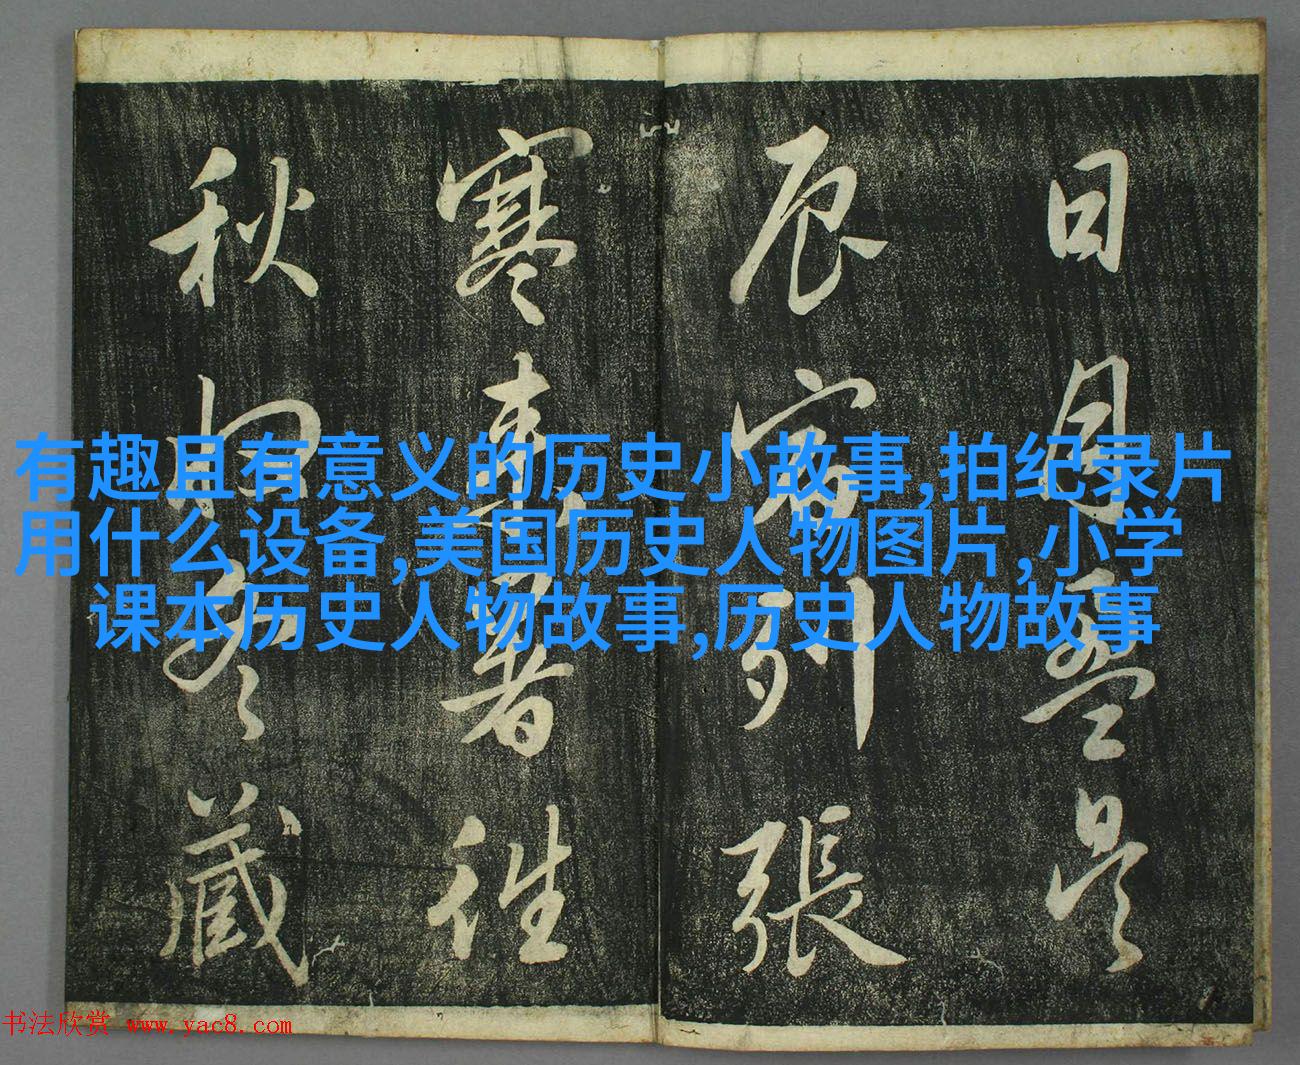 日月盈昃
辰宿列張
寒來暑往
秋收冬藏
有趣且有意义的历史小故事,拍纪录片
用什么设备,美国历史人物图片,小学
课本历史人物故事,历史人物故事
书法欣赏 www.yac8.com